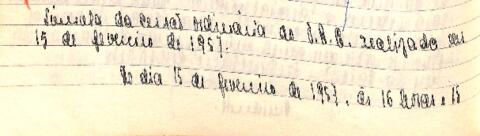 Súmula da sessão ordinária do D.A.A. realizada em
15 de fevereiro de 1957.
No dia 15 de fevereiro de 1957, às 16 horas e 15